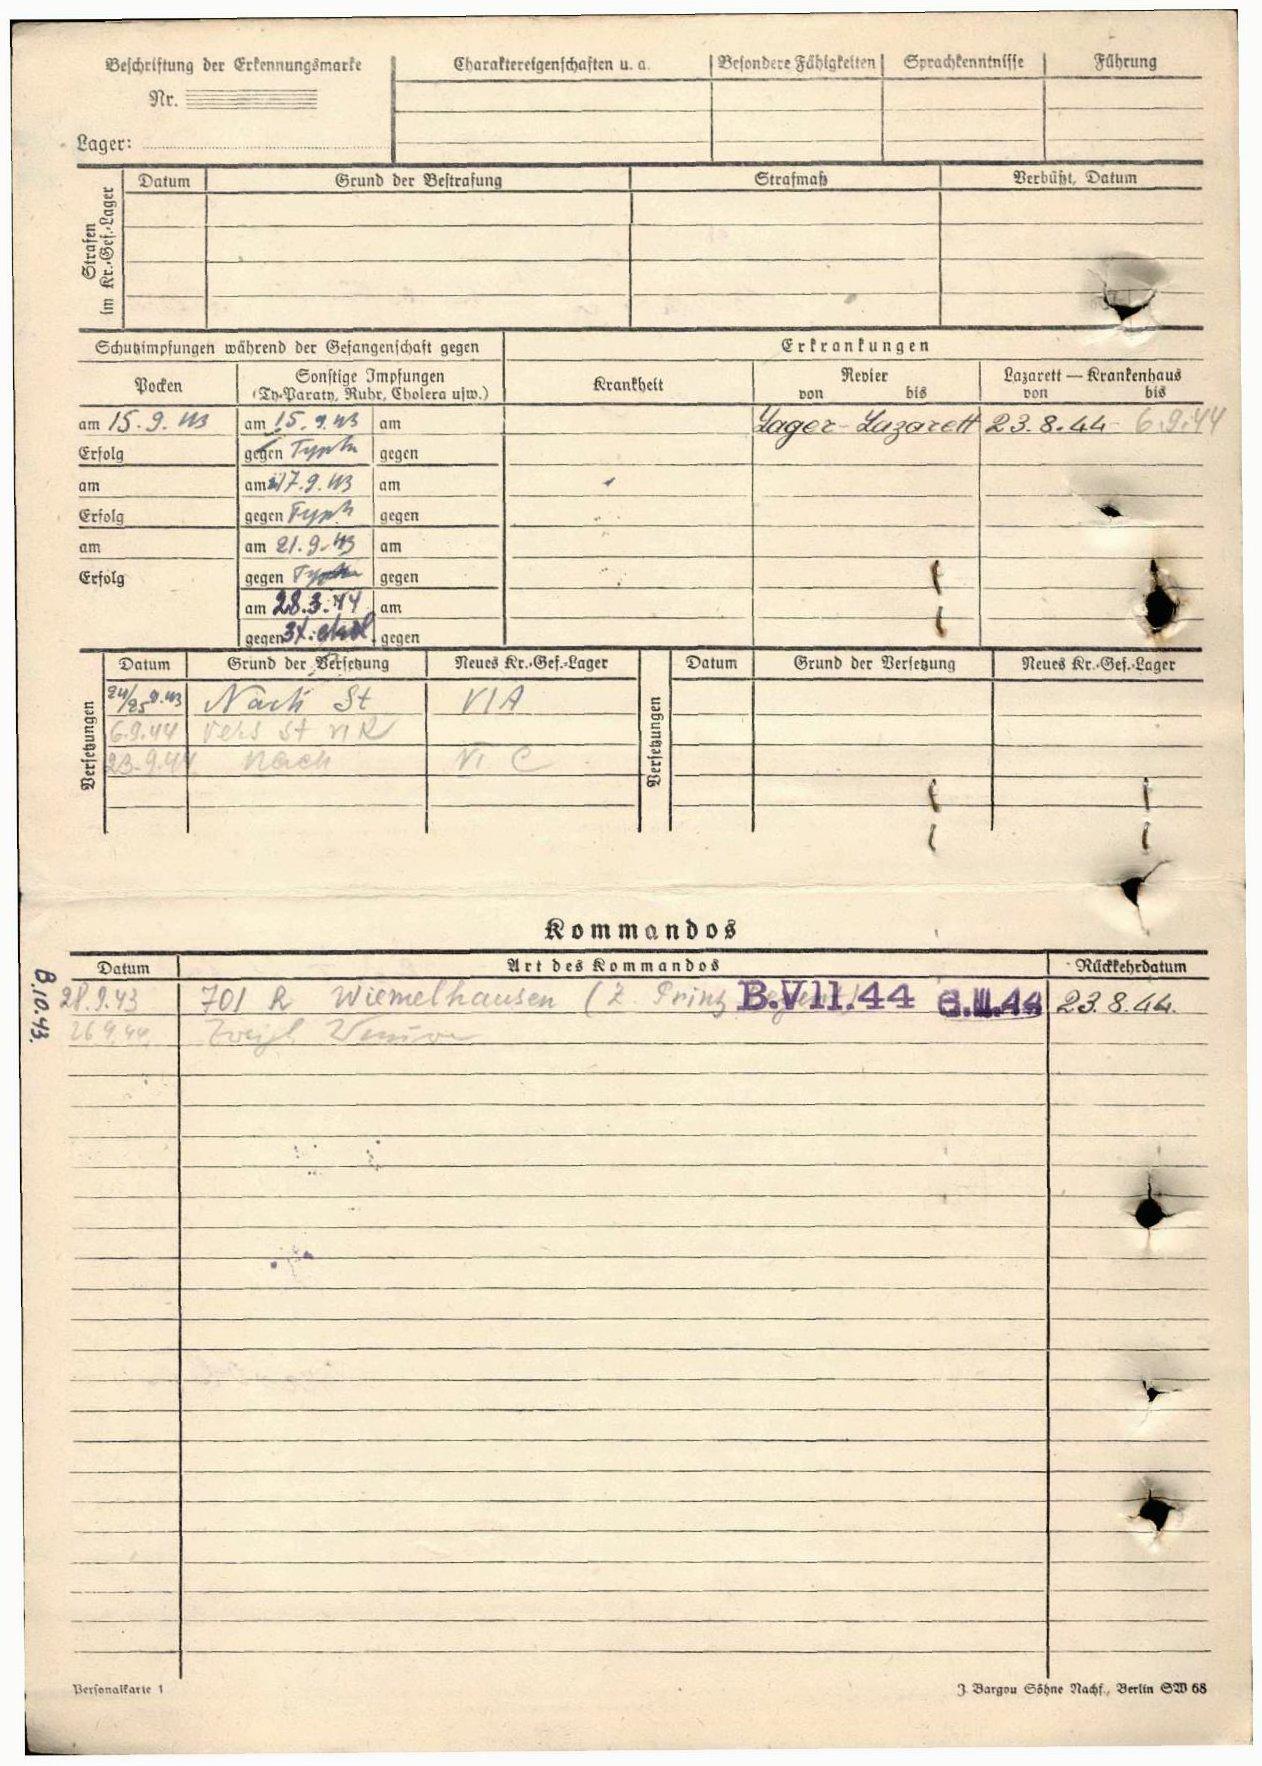 Beschriftung der Erkennungsmarke
Nr.
Lager:
Charaktereigenschaften u. a. Besondere Fähigkeiten Sprachkenntnisse Führung
Strafen im Kr.-Gef.-Lager
Datum Grund der Bestrafung Strafmaß Verbüßt, Datum
Schutzimpfungen während der Gefangenschaft gegen
Erkrankungen
Pocken
Sonstige Impfungen
(Ty-Paraty, Ruhr, Cholera usw.)
Krankheit
Revier
von bis
Lazarett — Krankenhaus
von bis
am 15.9.43 am 15.9.43 am Lager-Lazarett 23.8.44 6.9.44
Erfolg gegen Typh gegen
am am 17.9.43 am
Erfolg gegen Typh gegen
am am 21.9.43 am
Erfolg gegen Typh gegen
am 28.3.44 am
gegen 3x. gegen
Versetzungen
Datum Grund der Versetzung Neues Kr.-Gef.-Lager
24/25 9.43 Nach St VI A
6.9.44 vers St VI K
23.9.44 nach VI C
Versetzungen
Datum Grund der Versetzung Neues Kr.-Gef.-Lager
Kommandos
Datum Art des Kommandos Rückkehrdatum
B.10.43.
28.9.43 701 R Wiemelhausen (Z. Prinz B.VII.44 23.8.44.
26 9.44
Personalkarte 1
J. Bargou Söhne Nachf., Berlin SW 68